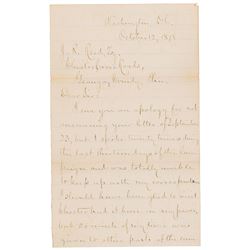 Washington, D.C.
October 12, 1878
J. R. Reed, Esq.
Dear Sir:
I owe you an apology for not
answering your letter of September
23, but I spoke twenty times during
the last thirteen days of the cam-
paign and was totally unable
to keep up with my correspondence
I should have been glad to visit
and it been in my power,
but so much of my time was
given to other parts of the